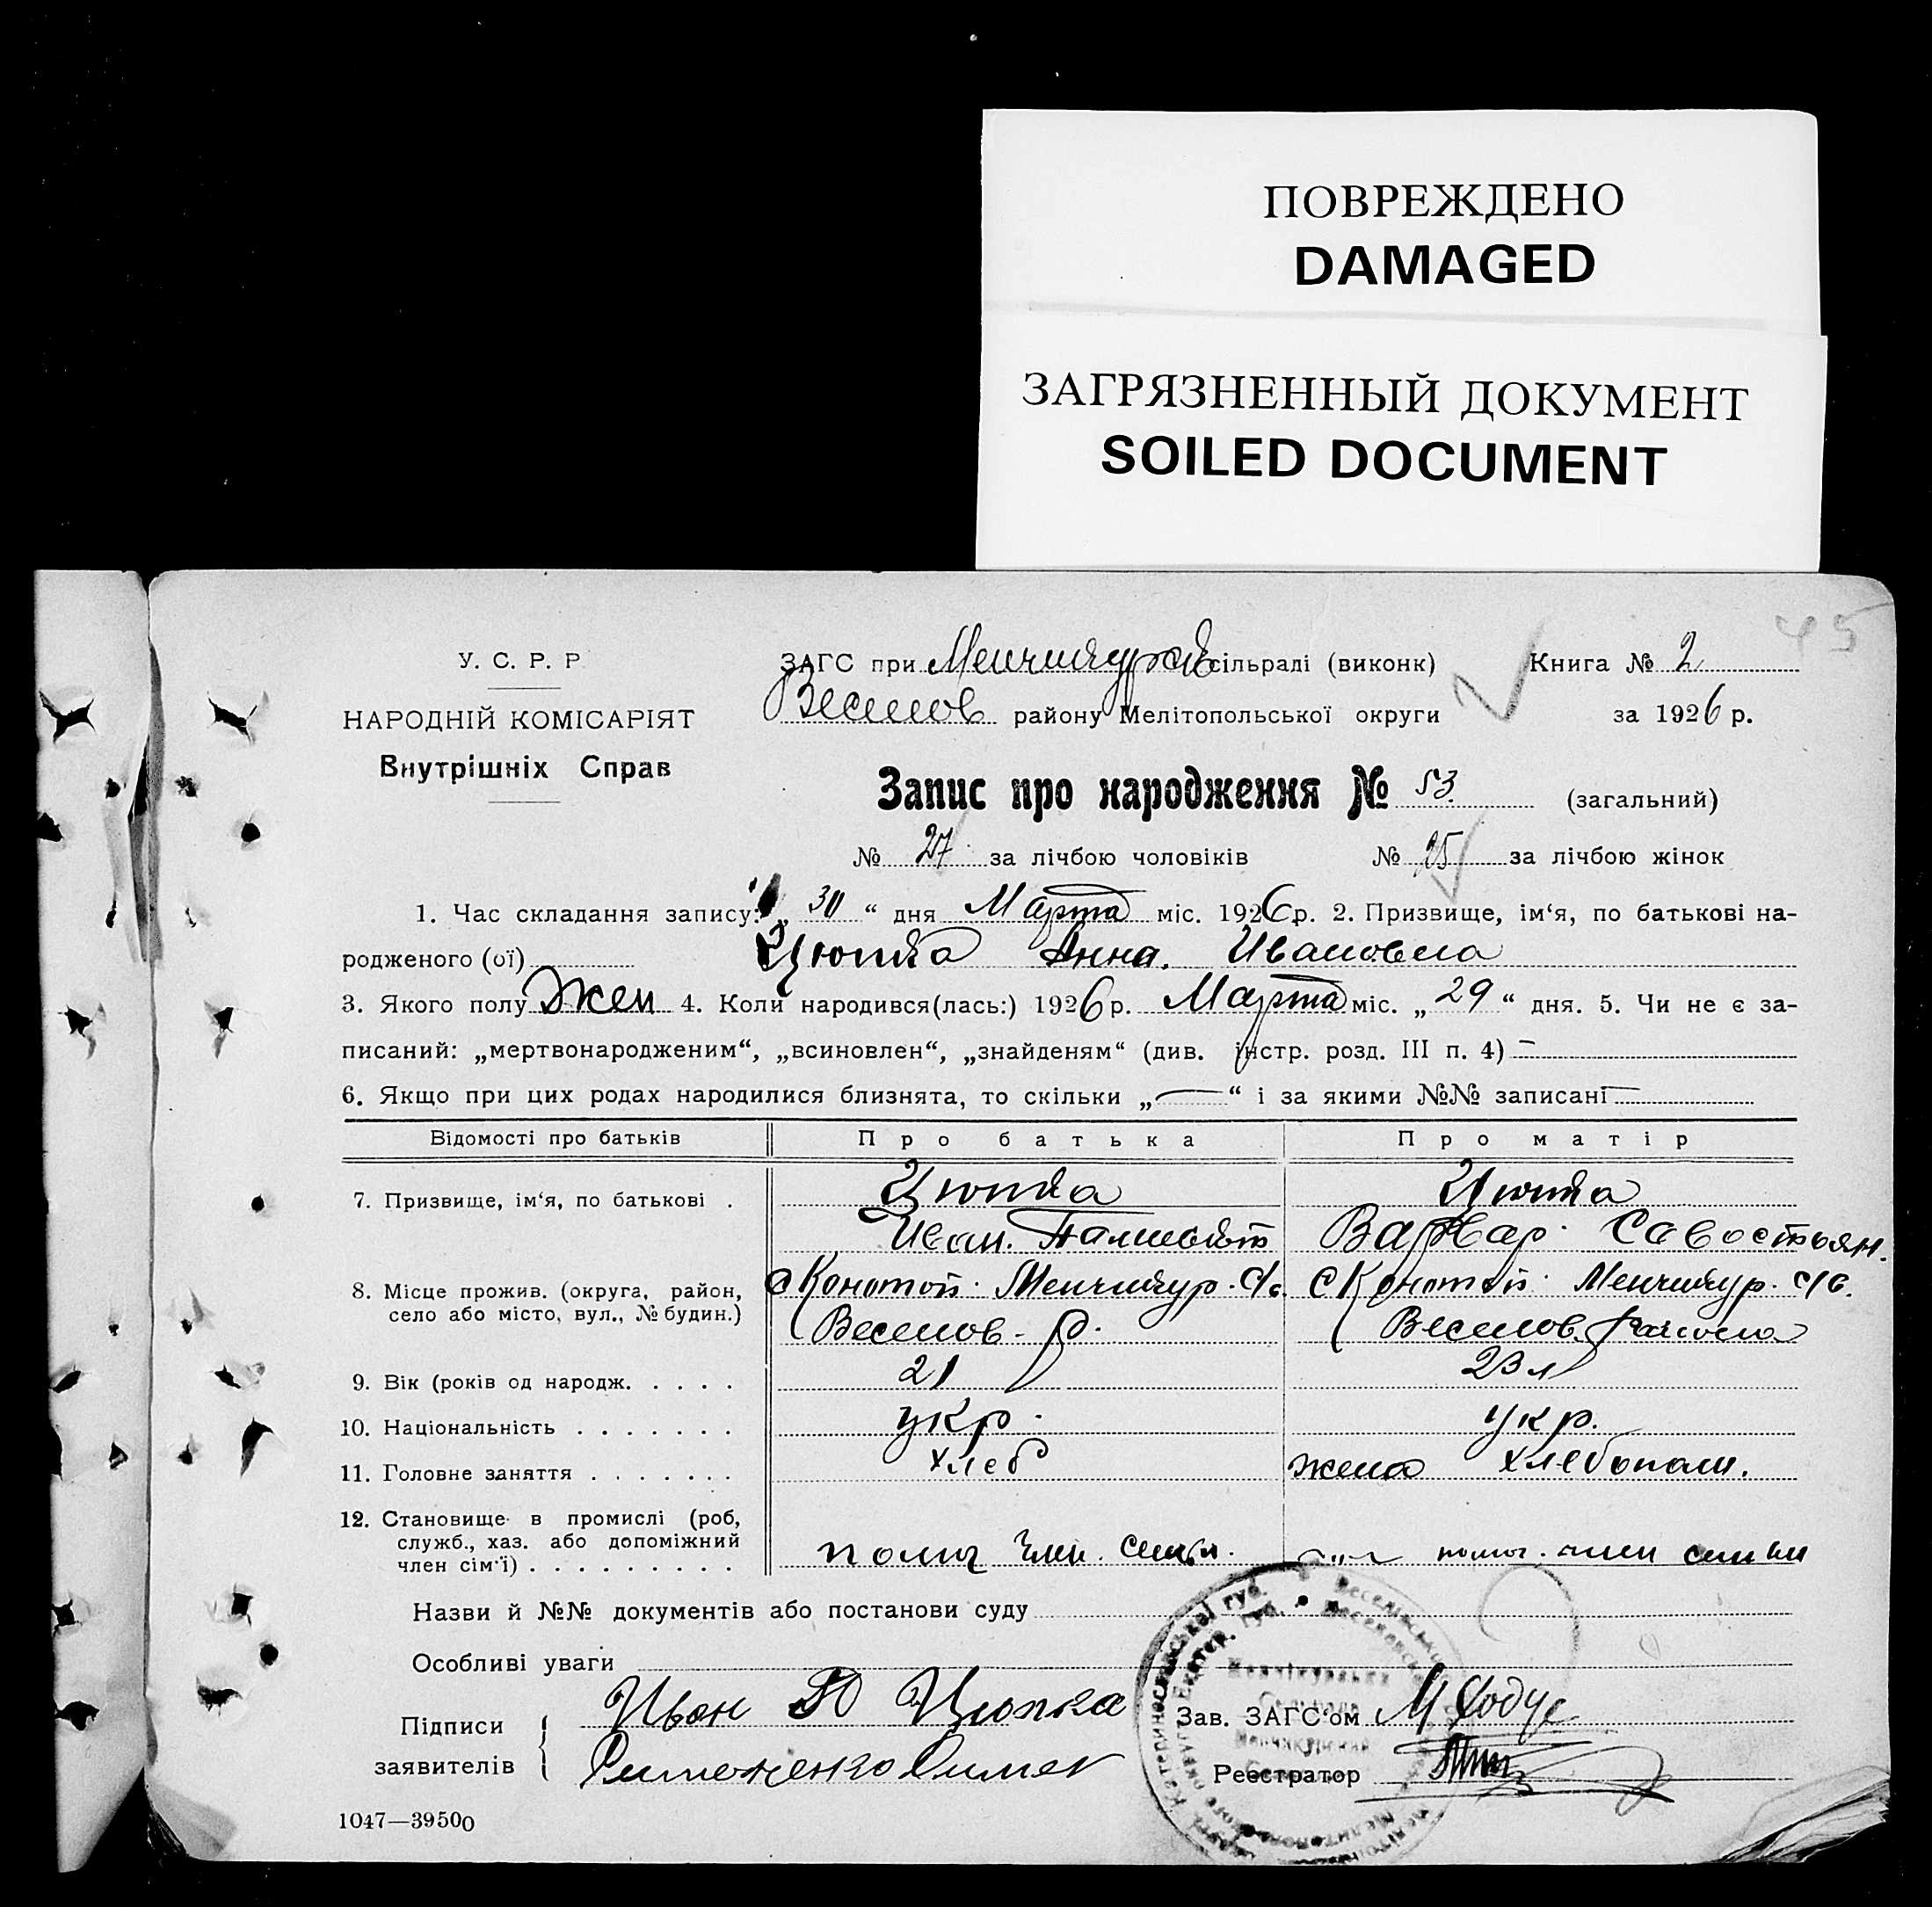 ПОВРЕЖДЕНО
DAMAGED
ЗАГРЯЗНЕННЫЙ ДОКУМЕНТ
SOILED DOCUMENT
45
У. С. Р. Р
НАРОДНІЙ КОМІСАРІЯТ
Внутрішніх Справ
ЗАГС при Менчикурск сільраді (виконк) Книга № 2
Веселов району Мелітопольської округи за 1926 р.
Запис про народження № 53. (загальний)
№ 27 за лічбою чоловіків № 25 за лічбою жінок
1. Час складання запису: „ 30 “ дня Марта міс. 1926 р. 2. Призвище, ім‘я, по батькові на-
родженого (ої) Цюпка Анна. Ивановна
3. Якого полу Жен 4. Коли народився(лась:) 1926 р. Марта міс. „ 29 “ дня. 5. Чи не є за-
писаний: „мертвонародженим“, „всиновлен“, „знайденям“ (див. інстр. розд. III п. 4) —
6. Якщо при цих родах народилися близнята, то скільки „—“ і за якими №№ записані —
Відомості про батьків Про батька Про матір
7. Призвище, ім‘я, по батькові . Цюпка Цюпка
Иван. Варвар. Савостьян.
8. Місце прожив. (округа, район, с Конотоп. Менчикур. с/с. с Конотоп. Менчикур. с/с.
село або місто, вул., № будин.) Веселов. р. Веселов. района
9. Вік (років од народж. . . . . 21 23 л
10. Національність . . . . . . . укр. укр.
11. Головне заняття . . . . . . . хлеб жена хлебопаш.
12. Становище в промислі (роб,
служб., хаз. або допоміжний
член сім‘ї) . . . . . . . . . помог член. семьи. —„— помог. член семьи
Назви й №№ документів або постанови суду
Особливі уваги
Підписи Иван Цюпка Зав. ЗАГС‘ом М Ходус
заявителів Реєстратор
1047—39500